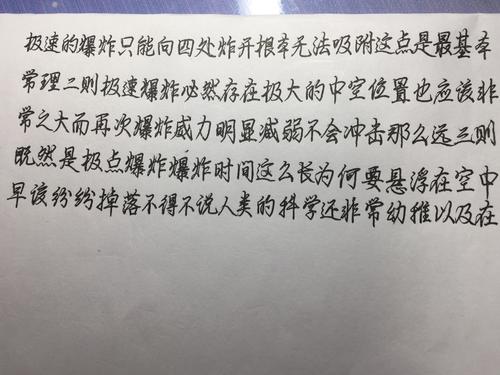 极速的爆炸只能向四处炸开根本无法吸附这点是最基本
常理二则极速爆炸必然存在极大的中空位置也应该非
常之大而再次爆炸威力明显减弱不会冲击那么远三则
既然是极点爆炸爆炸时间这么长为何要悬浮在空中
早该纷纷掉落不得不说人类的科学还非常幼稚以及在